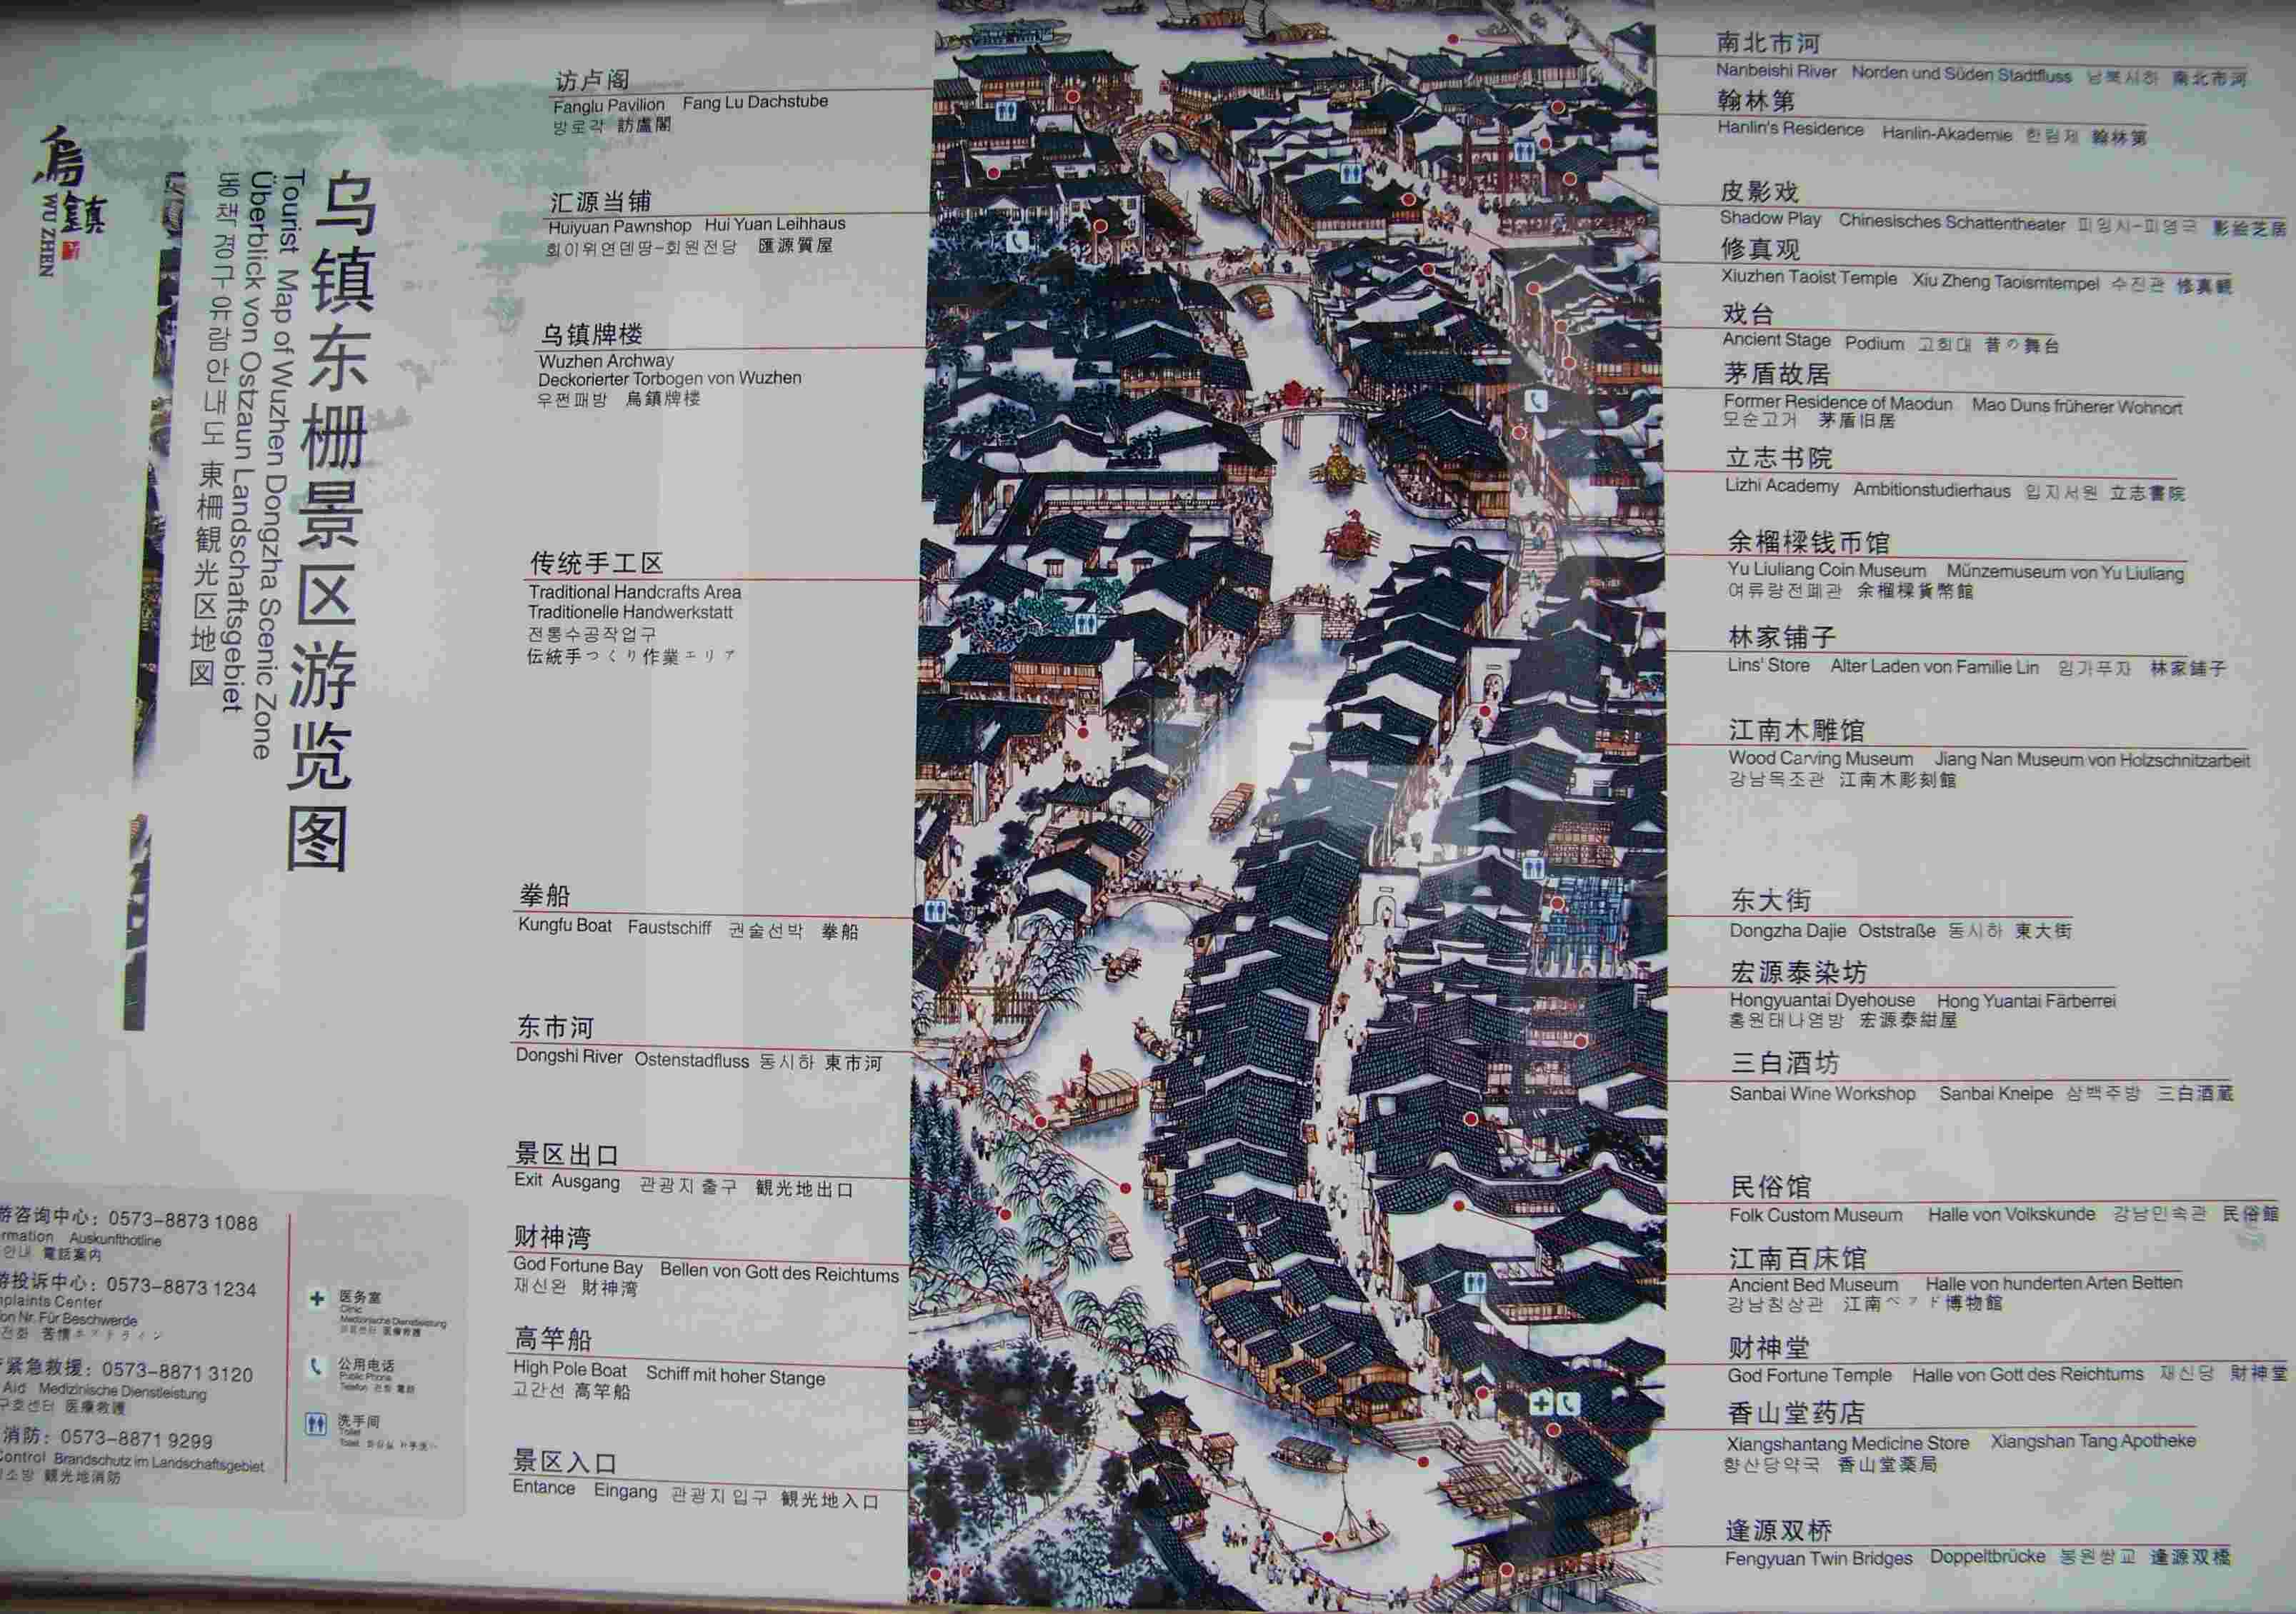 烏鎮
WU ZHEN
乌镇东栅景区游览图
Tourist Map of Wuzhen Dongzha Scenic Zone
Überblick von Ostzaun Landschaftsgebiet
동책경구유람안내도 東柵観光区地図
访卢阁
Fanglu Pavilion Fang Lu Dachstube
방로각 訪盧閣
汇源当铺
Huiyuan Pawnshop Hui Yuan Leihhaus
회이위연덴땅-회원전당 匯源質屋
乌镇牌楼
Wuzhen Archway
Deckorierter Torbogen von Wuzhen
우쩐패방 烏鎮牌楼
传统手工区
Traditional Handcrafts Area
Traditionelle Handwerkstatt
전통수공작업구
伝統手つくり作業エリア
拳船
Kungfu Boat Faustschiff 권술선박 拳船
东市河
Dongshi River Ostenstadfluss 동시하 東市河
景区出口
Exit Ausgang 관광지출구 観光地出口
财神湾
God Fortune Bay Bellen von Gott des Reichtums
재신완 財神湾
高竿船
High Pole Boat Schiff mit hoher Stange
고간선 高竿船
景区入口
Entance Eingang 관광지입구 観光地入口
南北市河
Nanbeishi River Norden und Süden Stadtfluss 남북시하 南北市河
翰林第
Hanlin's Residence Hanlin-Akademie 한림제 翰林第
皮影戏
Shadow Play Chinesisches Schattentheater 피잉시-피영극 影絵芝居
修真观
Xiuzhen Taoist Temple Xiu Zheng Taoismtempel 수진관 修真観
戏台
Ancient Stage Podium 고희대 昔の舞台
茅盾故居
Former Residence of Maodun Mao Duns früherer Wohnort
모순고거 茅盾旧居
立志书院
Lizhi Academy Ambitionstudierhaus 입지서원 立志書院
余榴樑钱币馆
Yu Liuliang Coin Museum Münzemuseum von Yu Liuliang
여류량전폐관 余榴樑貨幣館
林家铺子
Lins' Store Alter Laden von Familie Lin 임가푸자 林家鋪子
江南木雕馆
Wood Carving Museum Jiang Nan Museum von Holzschnitzarbeit
강남목조관 江南木彫刻館
东大街
Dongzha Dajie Oststraße 동시하 東大街
宏源泰染坊
Hongyuantai Dyehouse Hong Yuantai Färberrei
홍원태나염방 宏源泰紺屋
三白酒坊
Sanbai Wine Workshop Sanbai Kneipe 삼백주방 三白酒蔵
民俗馆
Folk Custom Museum Halle von Volkskunde 강남민속관 民俗館
江南百床馆
Ancient Bed Museum Halle von hunderten Arten Betten
강남침상관 江南ベッド博物館
财神堂
God Fortune Temple Halle von Gott des Reichtums 재신당 財神堂
香山堂药店
Xiangshantang Medicine Store Xiangshan Tang Apotheke
향산당약국 香山堂薬局
逢源双桥
Fengyuan Twin Bridges Doppeltbrücke 봉원쌍교 逢源双橋
游咨询中心: 0573-8873 1088
rmation Auskunfthotline
안내 電話案内
游投诉中心: 0573-8873 1234
plaints Center
on Nr. Für Beschwerde
전화 苦情ホットライン
紧急救援: 0573-8871 3120
Aid Medizinische Dienstleistung
구호센터 医療救護
消防: 0573-8871 9299
Control Brandschutz im Landschaftsgebiet
소방 観光地消防
医务室
Clinic
Medizinische Dienstleistung
医療救護
公用电话
Public Phone
Telefon 전화 電話
洗手间
Toilet
Toilet 화장실